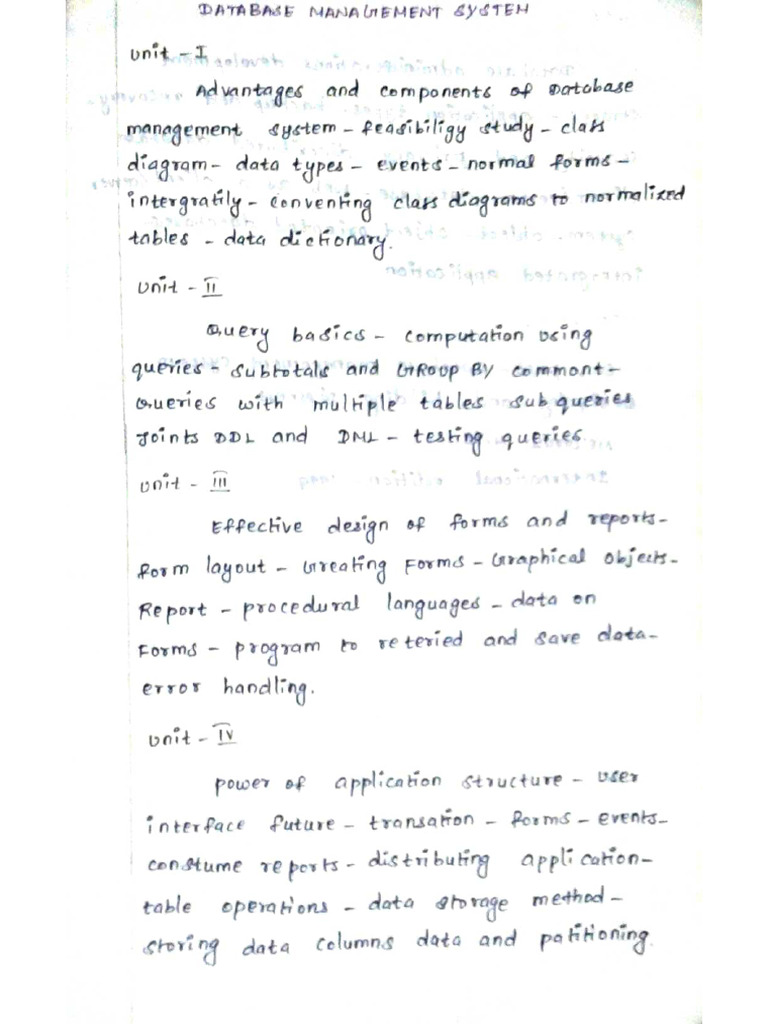 DATABASE MANAGEMENT SYSTEM
Unit - I
Advantages and components of Database
management system - feasibiligy study - class
diagram - data types - events - normal forms -
intergratily - conventing class diagrams to normalized
tables - data dictionary.
Unit - II
Query basics - computation using
queries - subtotals and GROUP BY commont -
Queries with multiple tables sub queries
Joints DDL and DML - testing queries
Unit - III
Effective design of forms and reports -
form layout - Greating Forms - Graphical objects -
Report - procedural languages - data on
Forms - program to reteried and save data -
error handling.
Unit - IV
power of application structure - user
interface future - transation - forms - events -
constume reports - distributing application -
table operations - data storage method -
storing data columns data and patitioning.